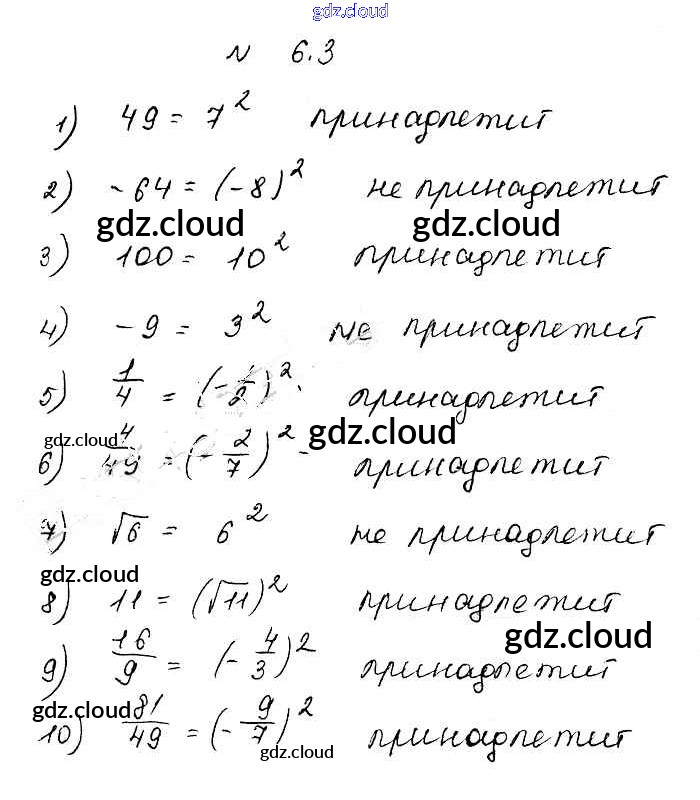 gdz.cloud
N 6.3
1) 49 = 7² принадлежит
2) -64 = (-8)² не принадлежит
gdz.cloud gdz.cloud
3) 100 = 10² принадлежит
4) -9 = 3² не принадлежит
5) 1/4 = (-1/2)². принадлежит
gdz.cloud gdz.cloud
6) 4/49 = (-2/7)² - принадлежит
7) √6 = 6² не принадлежит
gdz.cloud
8) 11 = (√11)² принадлежит
gdz.cloud
9) 16/9 = (-4/3)² принадлежит
gdz.cloud
10) 81/49 = (-9/7)² принадлежит
gdz.cloud